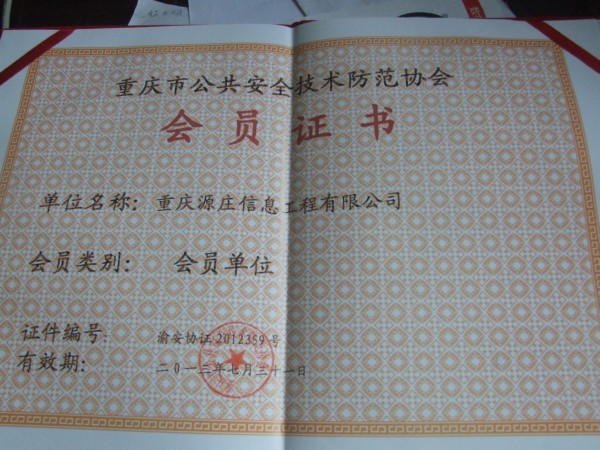 重庆市公共安全技术防范协会
会员证书
单位名称：重庆源庄信息工程有限公司
会员类别：会员单位
证件编号：渝安协证2012359号
有效期：二0一三年七月三十一日